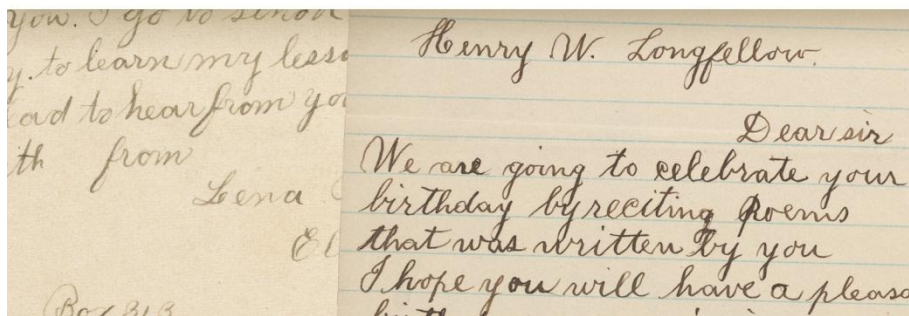 you. I go to school
y. to learn my less
ad to hear from yo
th from
Lena
El
Box 313
Henry W. Longfellow.
Dear sir
We are going to celebrate your
birthday by reciting poems
that was written by you
I hope you will have a pleasa